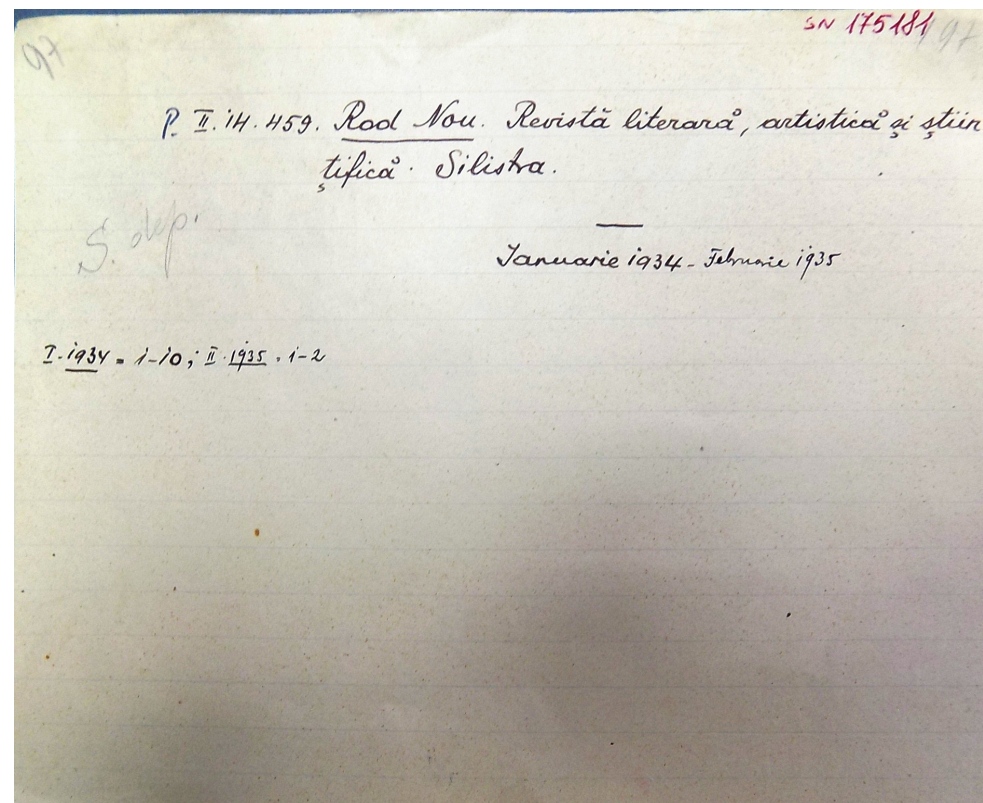 97
SN 175181 97
P. II. 14. 459. Rod Nou. Revistă literară, artistică și știin
țifică. Silistra.
S. dep.
Ianuarie 1934 - Februarie 1935
I. 1934 = 1-10; II. 1935 = 1-2